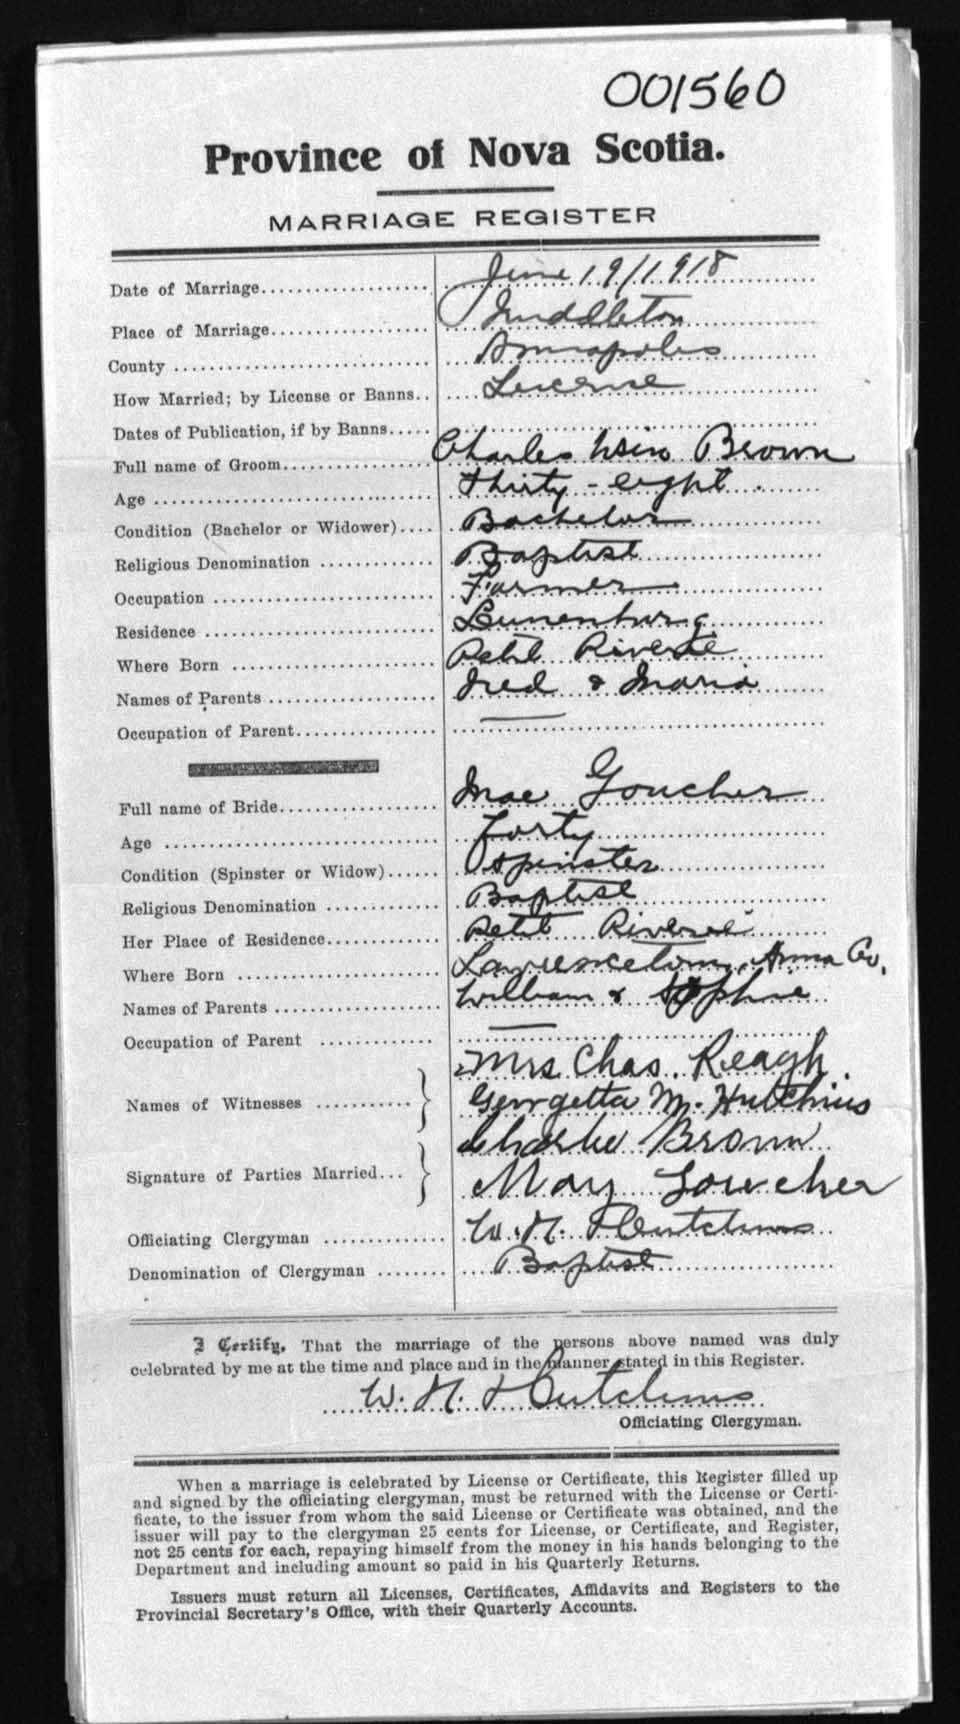 001560
Province of Nova Scotia.
MARRIAGE REGISTER
Date of Marriage.................... June 19/1918
Place of Marriage.................. Middleton
County ............................. Annapolis
How Married; by License or Banns.. License
Dates of Publication, if by Banns.....
Full name of Groom................. Charles Brown
Age ................................ Thirty-eight
Condition (Bachelor or Widower).... Bachelor
Religious Denomination ............. Baptist
Occupation ......................... Farmer
Residence .......................... Lunenburg
Where Born ....................... Petit Riviere
Names of Parents ................... Fred & Maria
Occupation of Parent................ —
Full name of Bride.................. Mae Goucher
Age ............................... Forty
Condition (Spinster or Widow)...... Spinster
Religious Denomination ............. Baptist
Her Place of Residence............. Petit Riviere
Where Born ....................... Lawrencetown, Anna Co.
Names of Parents ................... William & Sophie
Occupation of Parent ............. —
Mrs Chas. Reagh
Names of Witnesses ........... } Georgetta M. Hutchins
Charlie Brown
Signature of Parties Married... } May Goucher
Officiating Clergyman .............. W. N. Hutchins
Denomination of Clergyman ........ Baptist
I Certify, That the marriage of the persons above named was duly
celebrated by me at the time and place and in the manner stated in this Register.
W. N. Hutchins
Officiating Clergyman.
When a marriage is celebrated by License or Certificate, this Register filled up
and signed by the officiating clergyman, must be returned with the License or Certi-
ficate, to the issuer from whom the said License or Certificate was obtained, and the
issuer will pay to the clergyman 25 cents for License, or Certificate, and Register,
not 25 cents for each, repaying himself from the money in his hands belonging to the
Department and including amount so paid in his Quarterly Returns.
Issuers must return all Licenses, Certificates, Affidavits and Registers to the
Provincial Secretary's Office, with their Quarterly Accounts.